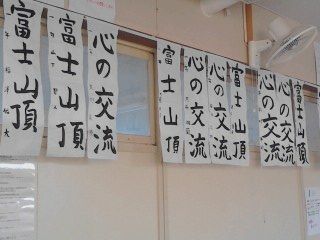 富士山頂
富士山頂
心の交流
富士山頂
心の交流
心の交流
富士山頂
心の交流
心の交流
富士山頂